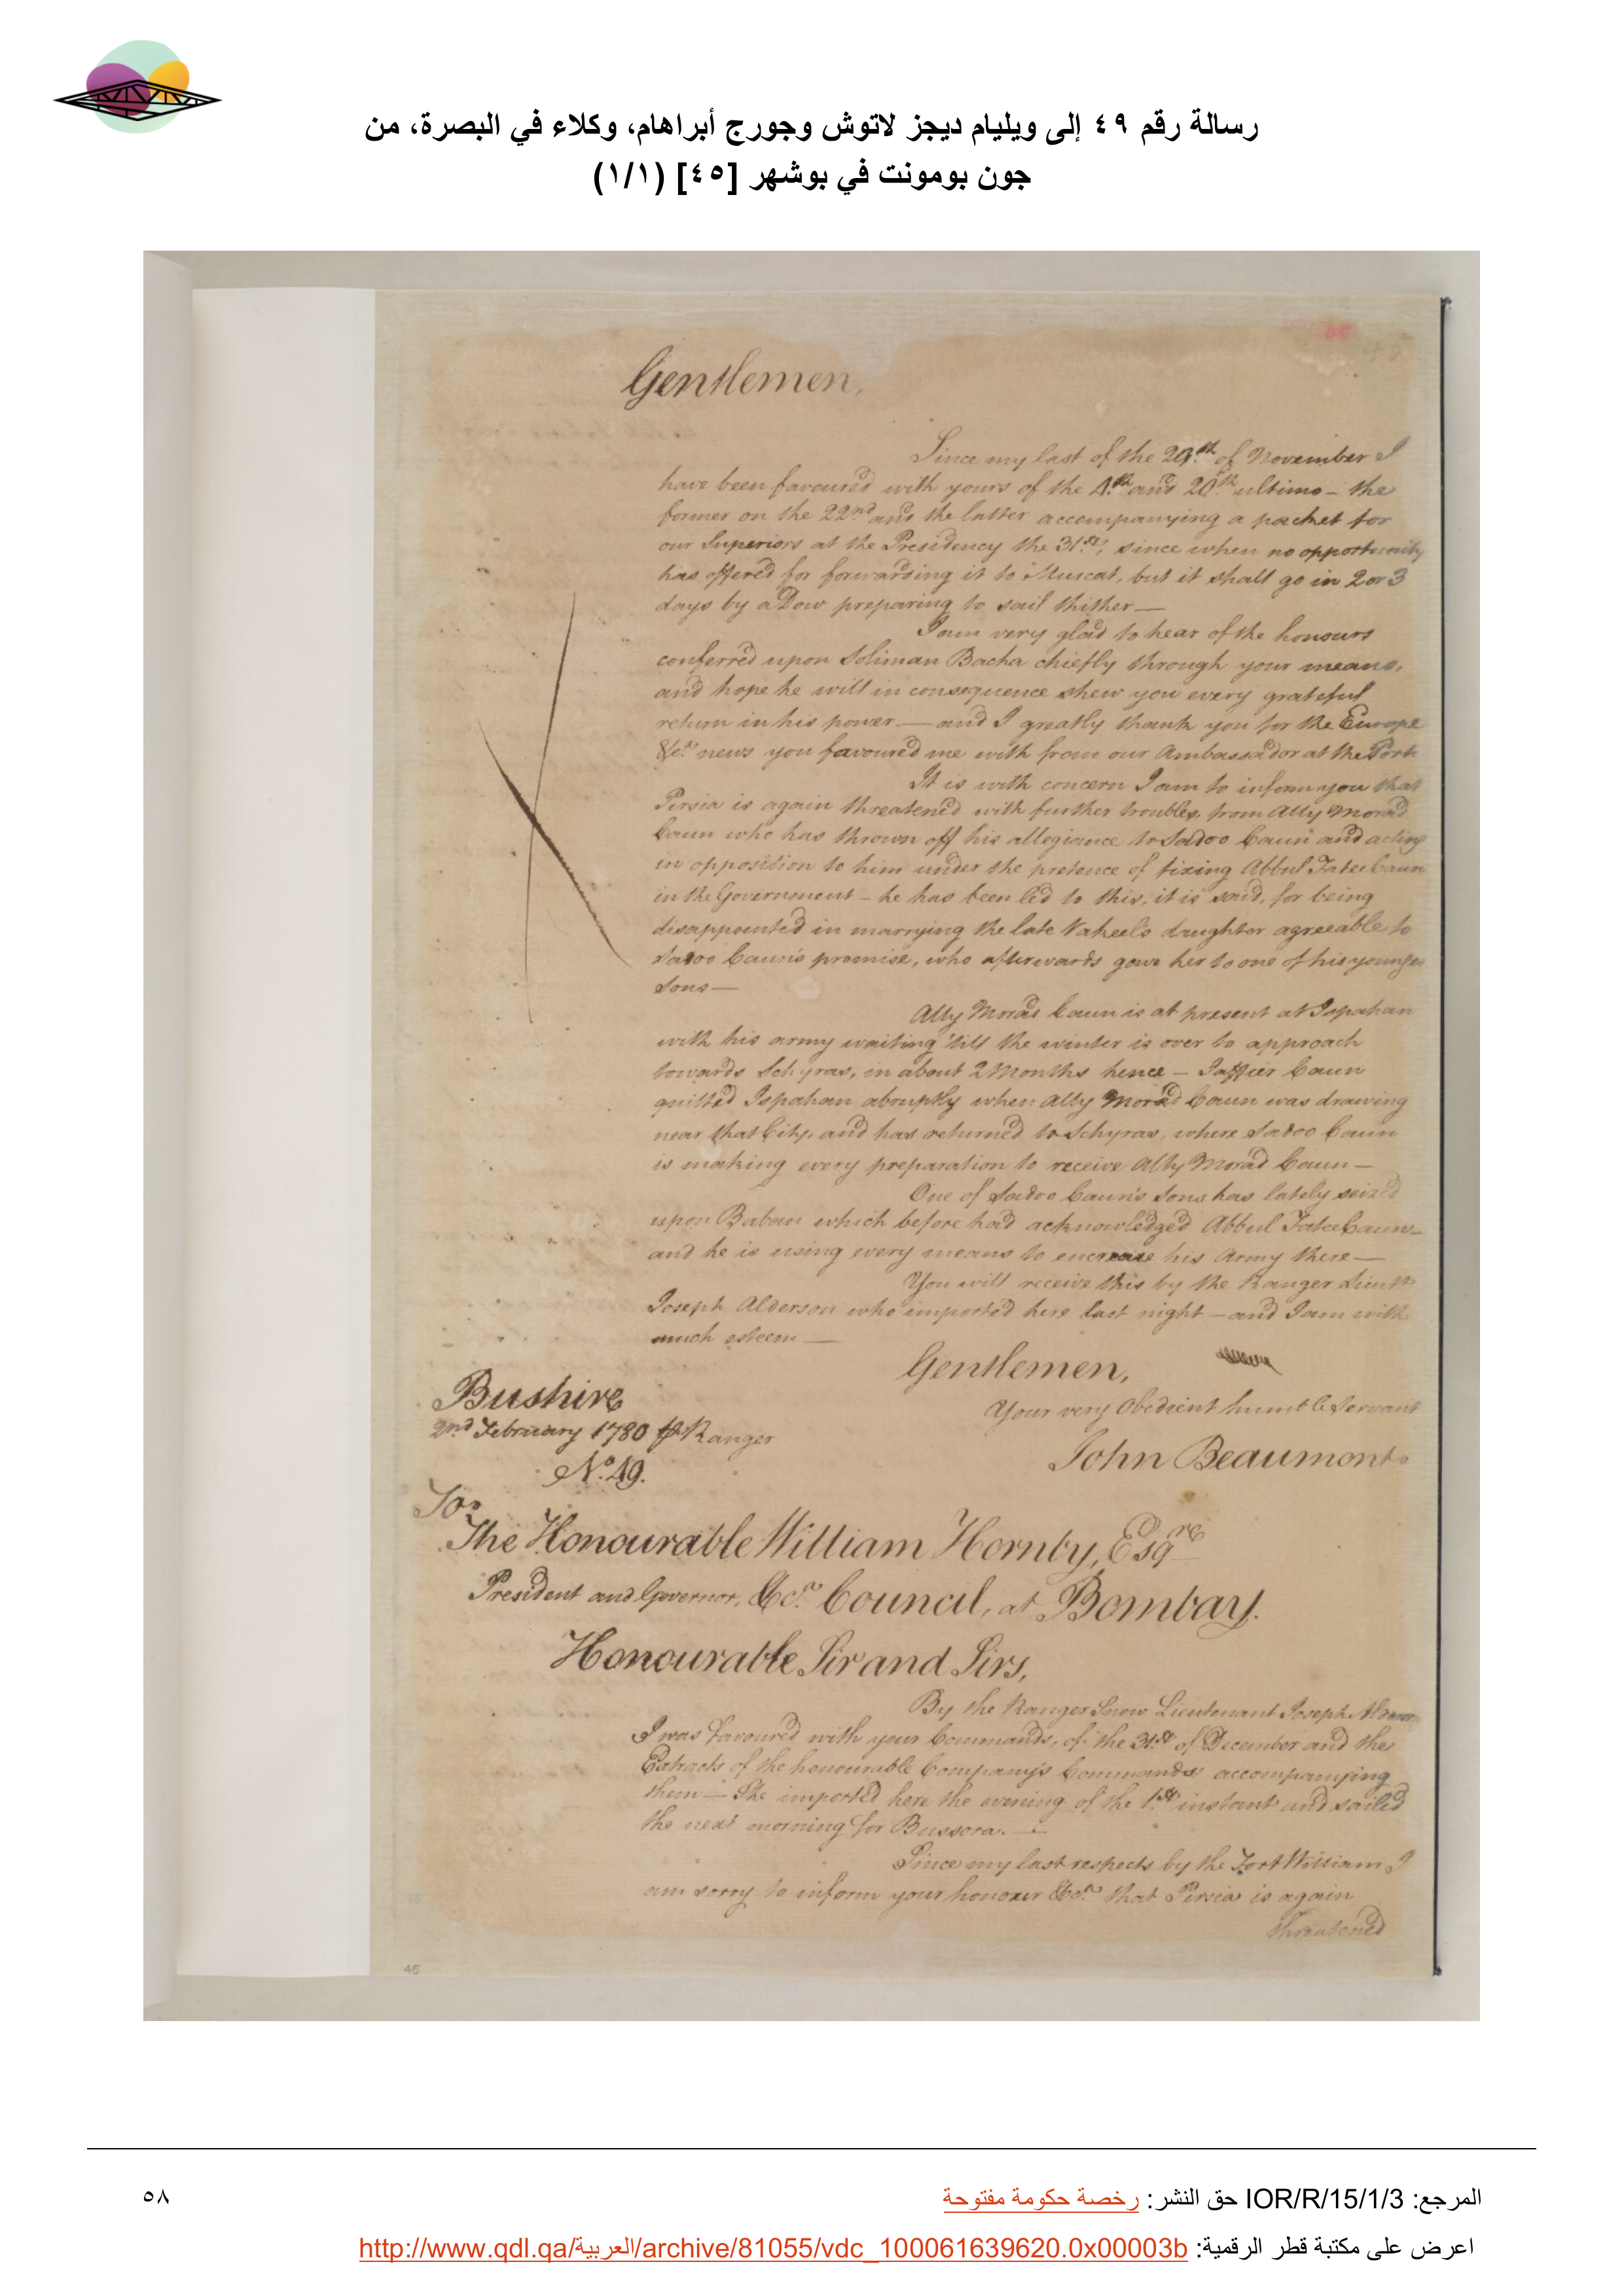 رسالة رقم ٤٩ إلى ويليام ديجز لاتوش وجورج أبراهام، وكلاء في البصرة، من
جون بومونت في بوشهر [٤٥] (١/١)
Gentlemen,
Since my last of the 29th of November I
have been favoured with yours of the 4th and 20th ultimo – the
former on the 22nd and the latter accompanying a packet for
our Superiors at the Presidency the 31st, since when no opportunity
has offered for forwarding it to Muscat, but it shall go in 2 or 3
days by a Dow preparing to sail thither —
I am very glad to hear of the honours
conferred upon Soliman Bacha chiefly through your means,
and hope he will in consequence shew you every grateful
return in his power — and I greatly thank you for the Europe
&ca. news you favoured me with from our Ambassador at the Port
It is with concern I am to inform you that
Persia is again threatened with further troubles, from Ally Morad
Caun who has thrown off his allegiance to Sadoo Caun and acting
in opposition to him under the pretence of fixing Abbul Fatee Caun
in the Government – he has been led to this, it is said, for being
disappointed in marrying the late Vakeels daughter agreeable to
Sadoo Caun's promise, who afterwards gave her to one of his younger
Sons —
Ally Morad Caun is at present at Ispahan
with his army waiting 'till the winter is over to approach
towards Schyras, in about 2 Months hence – Jaffier Caun
quitted Ispahan abruptly when Ally Morad Caun was drawing
near that City, and has returned to Schyras, where Sadoo Caun
is making every preparation to receive Ally Morad Caun —
One of Sadoo Caun's Sons has lately seized
upon Baban which before had acknowledged Abbul Fatee Caun
and he is using every means to encrease his Army there —
You will receive this by the Ranger Lieutt
Joseph Alderson who imported here last night – and I am with
much esteem —
Gentlemen,
Your very Obedient humble Servant
John Beaumont
Bushire
2nd February 1780 ⅌ Ranger
No. 49.
To:
The Honourable William Hornby, Esqre
President and Governor, &ca. Council, at Bombay.
Honourable Sir and Sirs,
By the Ranger Snow Lieutenant Joseph Alderson
I was favoured with your Commands, of the 31st of December and the
Extracts of the honourable Company's Commands accompanying
them — She imported here the evening of the 1st instant and sailed
the next morning for Bussora. —
Since my last respects by the Fort William, I
am sorry to inform your honour &ca. that Persia is again
threatened
45
المرجع: IOR/R/15/1/3 حق النشر: رخصة حكومة مفتوحة
٥٨
اعرض على مكتبة قطر الرقمية: http://www.qdl.qa/العربية/archive/81055/vdc_100061639620.0x00003b